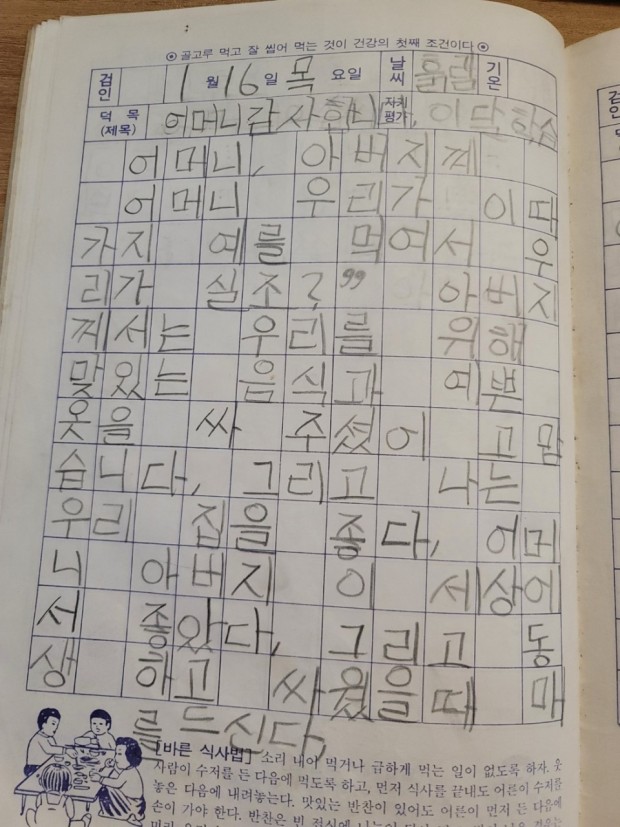 ⊙ 골고루 먹고 잘 씹어 먹는 것이 건강의 첫째 조건이다 ⊙
검인 1월 16일 목요일 날씨 흐림 기온
덕목(제목) 어머니감사합니 자치평가
어머니, 아버지께
어머니 우리가 이때
가지 예를 먹여서 우
리가 실조?"아버지
께서는 우리를 위해
맞있는 음식과 예쁜
옷을 싸 주셨어 고맘
습니다, 그리고 나는
우리 집을 좋다, 어머
니 아버지 이 세상에
서 좋았다, 그리고 동
생 하고 싸웠을때 매
를 드신다,
[바른 식사법] 소리 내어 먹거나 급하게 먹는 일이 없도록 하자. 웃
사람이 수저를 든 다음에 먹도록 하고, 먼저 식사를 끝내도 어른이 수저를
놓은 다음에 내려놓는다. 맛있는 반찬이 있어도 어른이 먼저 든 다음에
손이 가야 한다. 반찬은 빈 접시에